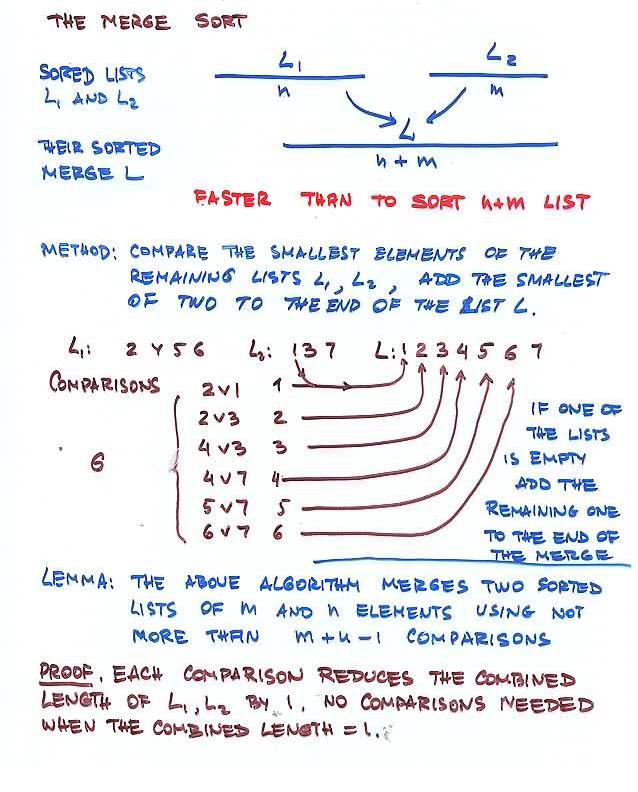 THE MERGE SORT
L1 L2
SORED LISTS
n m
L1 AND L2
L
THEIR SORTED
n + m
MERGE L
FASTER THAN TO SORT n+m LIST
METHOD: COMPARE THE SMALLEST ELEMENTS OF THE
REMAINING LISTS L1, L2, ADD THE SMALLEST
OF TWO TO THE END OF THE LIST L.
L1: 2 4 5 6 L2: 1 3 7 L: 1 2 3 4 5 6 7
COMPARISONS 2 v 1 1
2 v 3 2
4 v 3 3
6 4 v 7 4
5 v 7 5
6 v 7 6
IF ONE OF
THE LISTS
IS EMPTY
ADD THE
REMAINING ONE
TO THE END OF
THE MERGE
LEMMA: THE ABOVE ALGORITHM MERGES TWO SORTED
LISTS OF m AND n ELEMENTS USING NOT
MORE THAN m + n - 1 COMPARISONS
PROOF. EACH COMPARISON REDUCES THE COMBINED
LENGTH OF L1, L2 BY 1. NO COMPARISONS NEEDED
WHEN THE COMBINED LENGTH = 1.